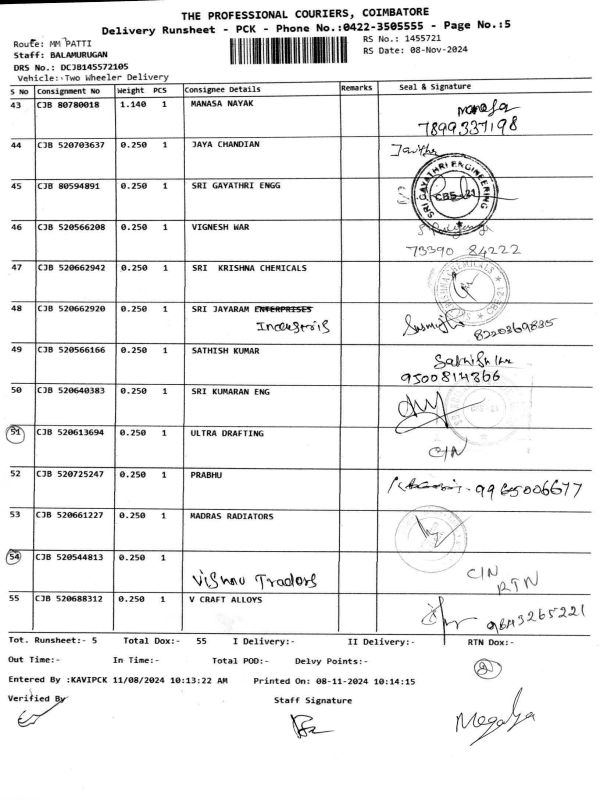 THE PROFESSIONAL COURIERS, COIMBATORE
Delivery Runsheet - PCK - Phone No.:0422-3505555 - Page No.:5
Route: MM PATTI
RS No.: 1455721
Staff: BALAMURUGAN
RS Date: 08-Nov-2024
DRS No.: DCJB145572105
Vehicle: Two Wheeler Delivery
S No Consignment No Weight PCS Consignee Details Remarks Seal & Signature
43 CJB 80780018 1.140 1 MANASA NAYAK
7899337198
44 CJB 520703637 0.250 1 JAYA CHANDIAN
45 CJB 80594891 0.250 1 SRI GAYATHRI ENGG
SRI GAYATHRI ENGINEERING
46 CJB 520566208 0.250 1 VIGNESH WAR
73390 84222
47 CJB 520662942 0.250 1 SRI KRISHNA CHEMICALS
48 CJB 520662920 0.250 1 SRI JAYARAM ENTERPRISES
8220369835
49 CJB 520566166 0.250 1 SATHISH KUMAR
9500814866
50 CJB 520640383 0.250 1 SRI KUMARAN ENG
51 CJB 520613694 0.250 1 ULTRA DRAFTING
C/N
52 CJB 520725247 0.250 1 PRABHU
9965006677
53 CJB 520661227 0.250 1 MADRAS RADIATORS
54 CJB 520544813 0.250 1
Vishnu Traders
C/N
RTN
55 CJB 520688312 0.250 1 V CRAFT ALLOYS
Tot. Runsheet:- 5 Total Dox:- 55 I Delivery:- II Delivery:- RTN Dox:-
Out Time:- In Time:- Total POD:- Delvy Points:-
Entered By :KAVIPCK 11/08/2024 10:13:22 AM Printed On: 08-11-2024 10:14:15
Verified By Staff Signature